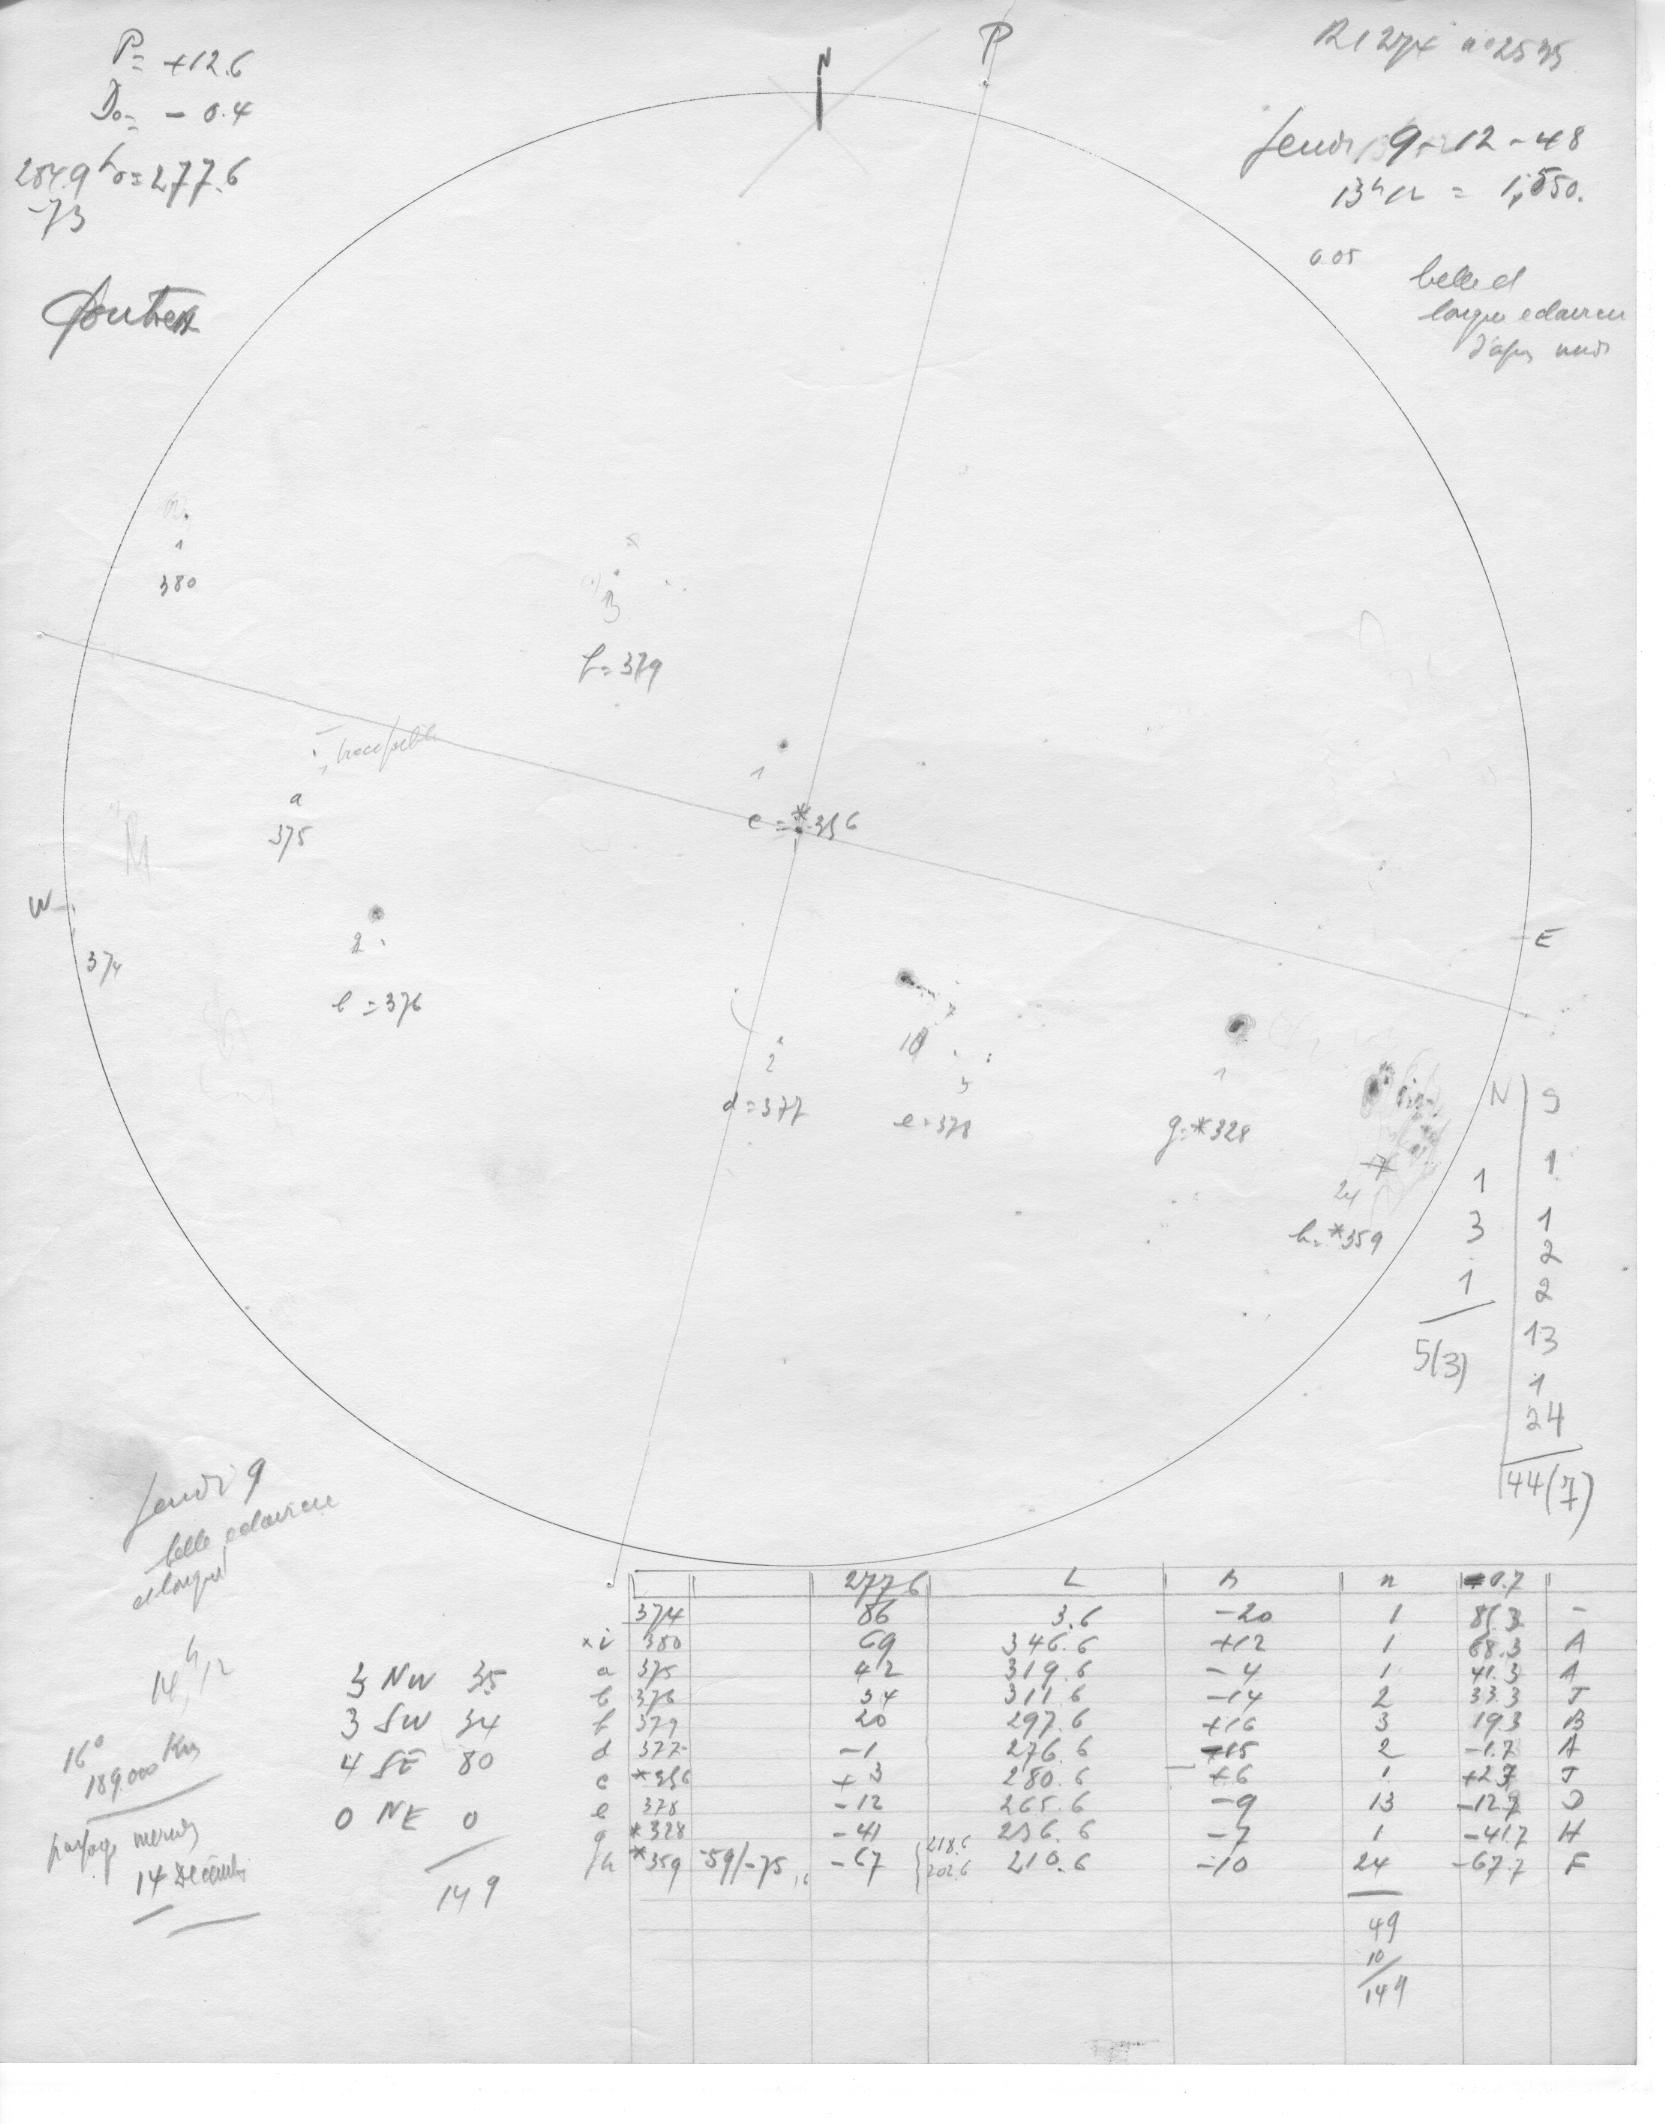 P= +12.6
Do= - 0.4
284.9 Lo=277.6
-73
N
P
Jeudi 9-12-48
13h12 = 1,550.
0.05
belle et
longue eclaircie
d'apres midi
1
380
3
f=379
a
375
W
374
2
b=376
1
c=*356
E
2
d=377
10
3
e=378
1
g=*328
24
h=*359
N | S
1
1
1
3
2
1
2
5(3)
13
1
24
44(7)
Jeudi 9
belle eclaircie
et longue
14h12
16°
189.000 Km
passage
14 Décemb
3 NW 35
3 SW 34
4 SE 80
0 NE 0
149
277 6 L n -0.7
374 86 3.6 -20 1 85.3 -
i 380 69 346.6 +12 1 68.3 A
a 375 42 319.6 -4 1 41.3 A
b 376 34 311.6 -14 2 33.3 J
f 379 20 297.6 +16 3 19.3 B
d 377 -1 276.6 -15 2 -1.7 A
c *356 +3 280.6 +6 1 +2.7 J
e 378 -12 265.6 -9 13 -12.7 D
g *328 -41 236.6 -7 1 -41.7 H
h *359 -59/-75 -67 218.6 202.6 210.6 -10 24 -67.7 F
49
10
149